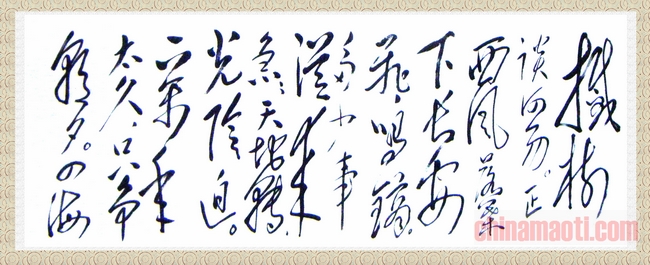 撼树
谈何易正
西风落葉
下长安
飛鸣镝
多少事
從来
急天地轉
光陰迫。
一万年
太久只争
朝夕。四海
chinamaoti.com